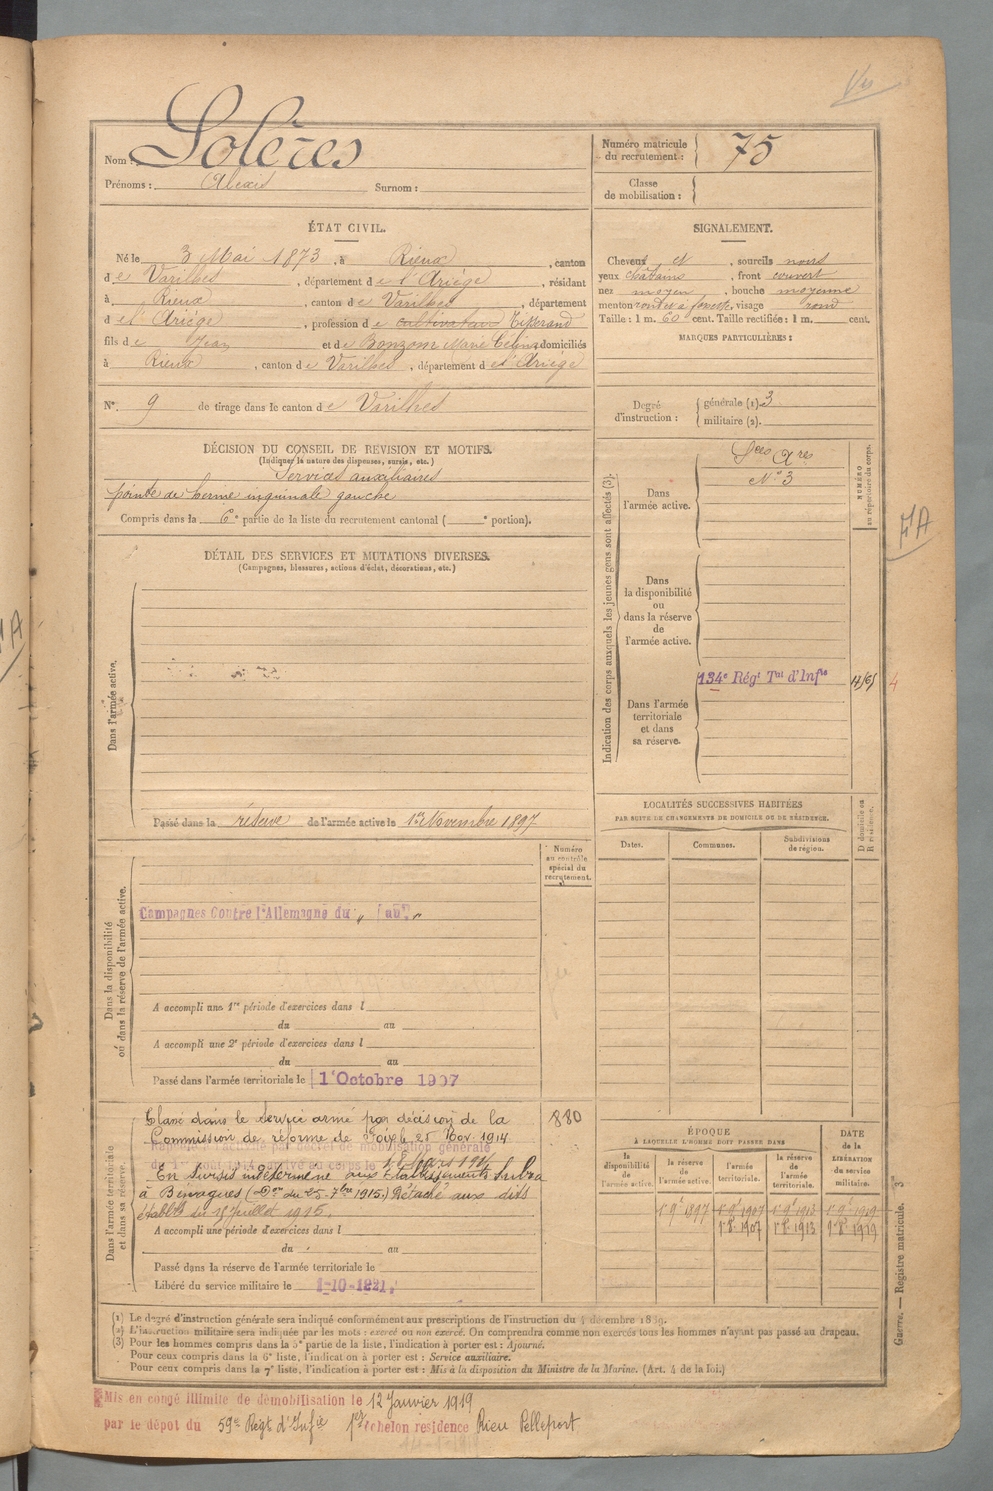 Nom : Solères
Prénoms : Alexis Surnom :
Numéro matricule du recrutement : 75
Classe de mobilisation :
ÉTAT CIVIL.
Né le 3 Mai 1873, à Rieux, canton
de Varilhes, département de l'Ariège, résidant
à Rieux, canton de Varilhes, département
de l'Ariège, profession de cultivateur Tisserand
fils de Jean et de Bonzom Marie Céline domiciliés
à Rieux, canton de Varilhes, département de l'Ariège
N° 9 de tirage dans le canton de Varilhes
SIGNALEMENT.
Cheveux et, sourcils noirs
yeux chatains, front couvert
nez moyen, bouche moyenne
menton rond et à fossette, visage rond
Taille : 1 m. 60 cent. Taille rectifiée : 1 m. cent.
MARQUES PARTICULIÈRES :
Degré d'instruction : générale (1). 3
militaire (2).
DÉCISION DU CONSEIL DE REVISION ET MOTIFS.
(Indiquer la nature des dispenses, sursis, etc.)
Services auxiliaires
pointe de hernie inguinale gauche
Compris dans la 6e partie de la liste du recrutement cantonal ( e portion).
DÉTAIL DES SERVICES ET MUTATIONS DIVERSES.
(Campagnes, blessures, actions d'éclat, décorations, etc.)
Dans l'armée active.
Passé dans la réserve de l'armée active le 1er Novembre 1897
Indication des corps auxquels les jeunes gens sont affectés (3).
NUMÉRO au répertoire du corps.
Dans l'armée active.
Sces Ares
N° 3
Dans la disponibilité ou dans la réserve de l'armée active.
Dans l'armée territoriale et dans sa réserve.
134e Régt Tal d'Infie
4
FA
LOCALITÉS SUCCESSIVES HABITÉES
PAR SUITE DE CHANGEMENTS DE DOMICILE OU DE RÉSIDENCE.
Dates. Communes. Subdivisions de région.
D domicile ou R résidence.
Dans la disponibilité ou dans la réserve de l'armée active.
Numéro au contrôle spécial du recrutement.
Campagnes Contre l'Allemagne du " au "
A accompli une 1re période d'exercices dans l
du au
A accompli une 2e période d'exercices dans l
du au
Passé dans l'armée territoriale le 1er Octobre 1907
Dans l'armée territoriale et dans sa réserve.
880
Classé dans le service armé par décision de la
Commission de réforme de Foix le 25 Nov. 1914
Rappelé à l'activité par Décret de mobilisation générale
du 1er Août 1914 arrivé au corps le
En sursis indéterminé aux Établissements Subra
à Bénagues (Don du 25-7bre 1915.) Détaché aux dits
établts du 1er Juillet 1915.
A accompli une période d'exercices dans l
du au
Passé dans la réserve de l'armée territoriale le
Libéré du service militaire le 1-10-1921
ÉPOQUE
À LAQUELLE L'HOMME DOIT PASSER DANS
la disponibilité de l'armée active. la réserve de l'armée active. l'armée territoriale. la réserve de l'armée territoriale.
DATE de la LIBÉRATION du service militaire.
1r 9e 1897 1r 9e 1907 1r 9e 1913 1r 9e 1919
1r 8e 1907 1r 8e 1913 1r 8e 1919
Guerre. — Registre matricule. 3
(1) Le degré d'instruction générale sera indiqué conformément aux prescriptions de l'instruction du 4 décembre 1889.
(2) L'instruction militaire sera indiquée par les mots : exercé ou non exercé. On comprendra comme non exercés tous les hommes n'ayant pas passé au drapeau.
(3) Pour les hommes compris dans la 5e partie de la liste, l'indication à porter est : Ajourné.
Pour ceux compris dans la 6e liste, l'indication à porter est : Service auxiliaire.
Pour ceux compris dans la 7e liste, l'indication à porter est : Mis à la disposition du Ministre de la Marine. (Art. 4 de la loi.)
Mis en congé illimité de démobilisation le 12 Janvier 1919
par le dépôt du 59e Régt d'Infie 1er échelon residence Rieu Pelleport